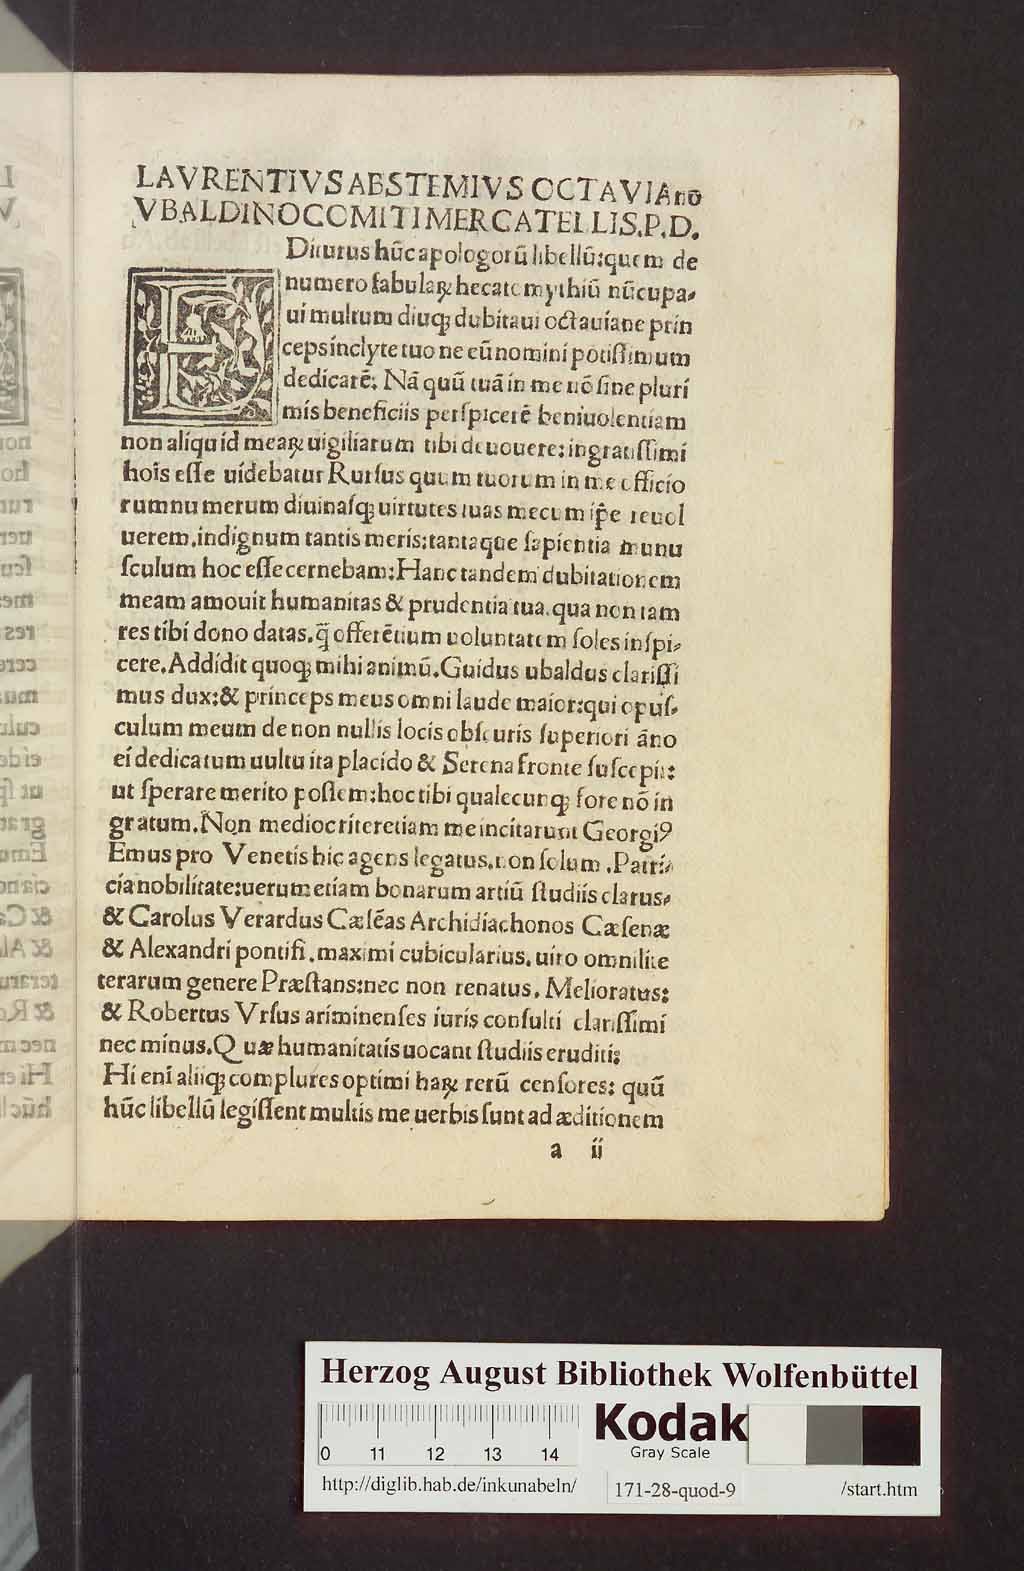 LAVRENTIVS ABSTEMIVS OCTAVIAnõ
VBALDINO COMITI MERCATELLIS.P.D.
EDiturus hũc apologorũ libellũ:quem de
numero fabulaꝝ hecatomythiũ nũcupa⸗
ui multum diuqꝫ dubitaui octauiane prin
ceps inclyte tuo ne eũ nomini potiſſimum
dedicarẽ: Nã quũ tuã in me nõ ſine pluri
mis beneficiis perſpicerẽ beniuolentiam
non aliquid meaꝝ uigiliarum tibi deuouere:ingratiſſimi
hoĩs eſſe uidebatur Rurſus quum tuorum in me officio
rum numerum diuinaſqꝫ uirtutes tuas mecum ip̃e reuol
uerem.indignum tantis meris:tantaque ſapientia munu
ſculum hoc eſſe cernebam:Hanc tandem dubitationem
meam amouit humanitas & prudentia tua.qua non tam
res tibi dono datas.q̃ offerẽtium uoluntatem ſoles inſpi⸗
cere.Addidit quoqꝫ mihi animũ.Guidus ubaldus clariſſi
mus dux:& princeps meus omni laude maior:qui opuſ⸗
culum meum de non nullis locis obſcuris ſuperiori ãno
ei dedicatum uultu ita placido & Serena fronte ſuſcepit:
ut ſperare merito poſſem:hoc tibi qualecunqꝫ fore nõ in
gratum.Non mediocriter etiam me incitarunt Georgiꝰ
Emus pro Venetis hic agens legatus.non ſolum .Patri⸗
cia nobilitate:uerum etiam bonarum artiũ ſtudiis clarus⸗
& Carolus Verardus Cæſẽas Archidiachonos Cæſenæ
& Alexandri pontifi.maximi cubicularius.uiro omni lite
terarum genere Præſtans:nec non renatus. Melioratus:
& Robertus Vrſus ariminenſes iuris conſulti clariſſimi
nec minus.Quæ humanitatis uocant ſtudiis eruditi:
Hi enĩ aliiqꝫ complures optimi haꝝ rerũ cenſores: quũ
hũc libellũ legiſſent multis me uerbis ſunt ad æditionem
a ii
Herzog August Bibliothek Wolfenbüttel
0 11 12 13 14
Kodak
Gray Scale
http://diglib.hab.de/inkunabeln/ 171-28-quod-9 /start.htm